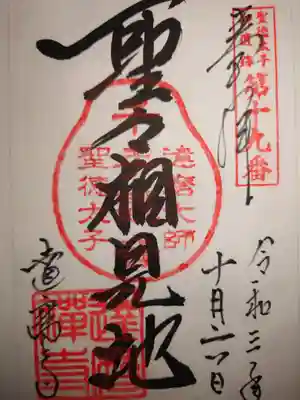 聖徳太子
遺跡
第十九番
奉拝
聖人相見地
達磨大師
聖徳太子
令和三年
十月二六日
達磨寺